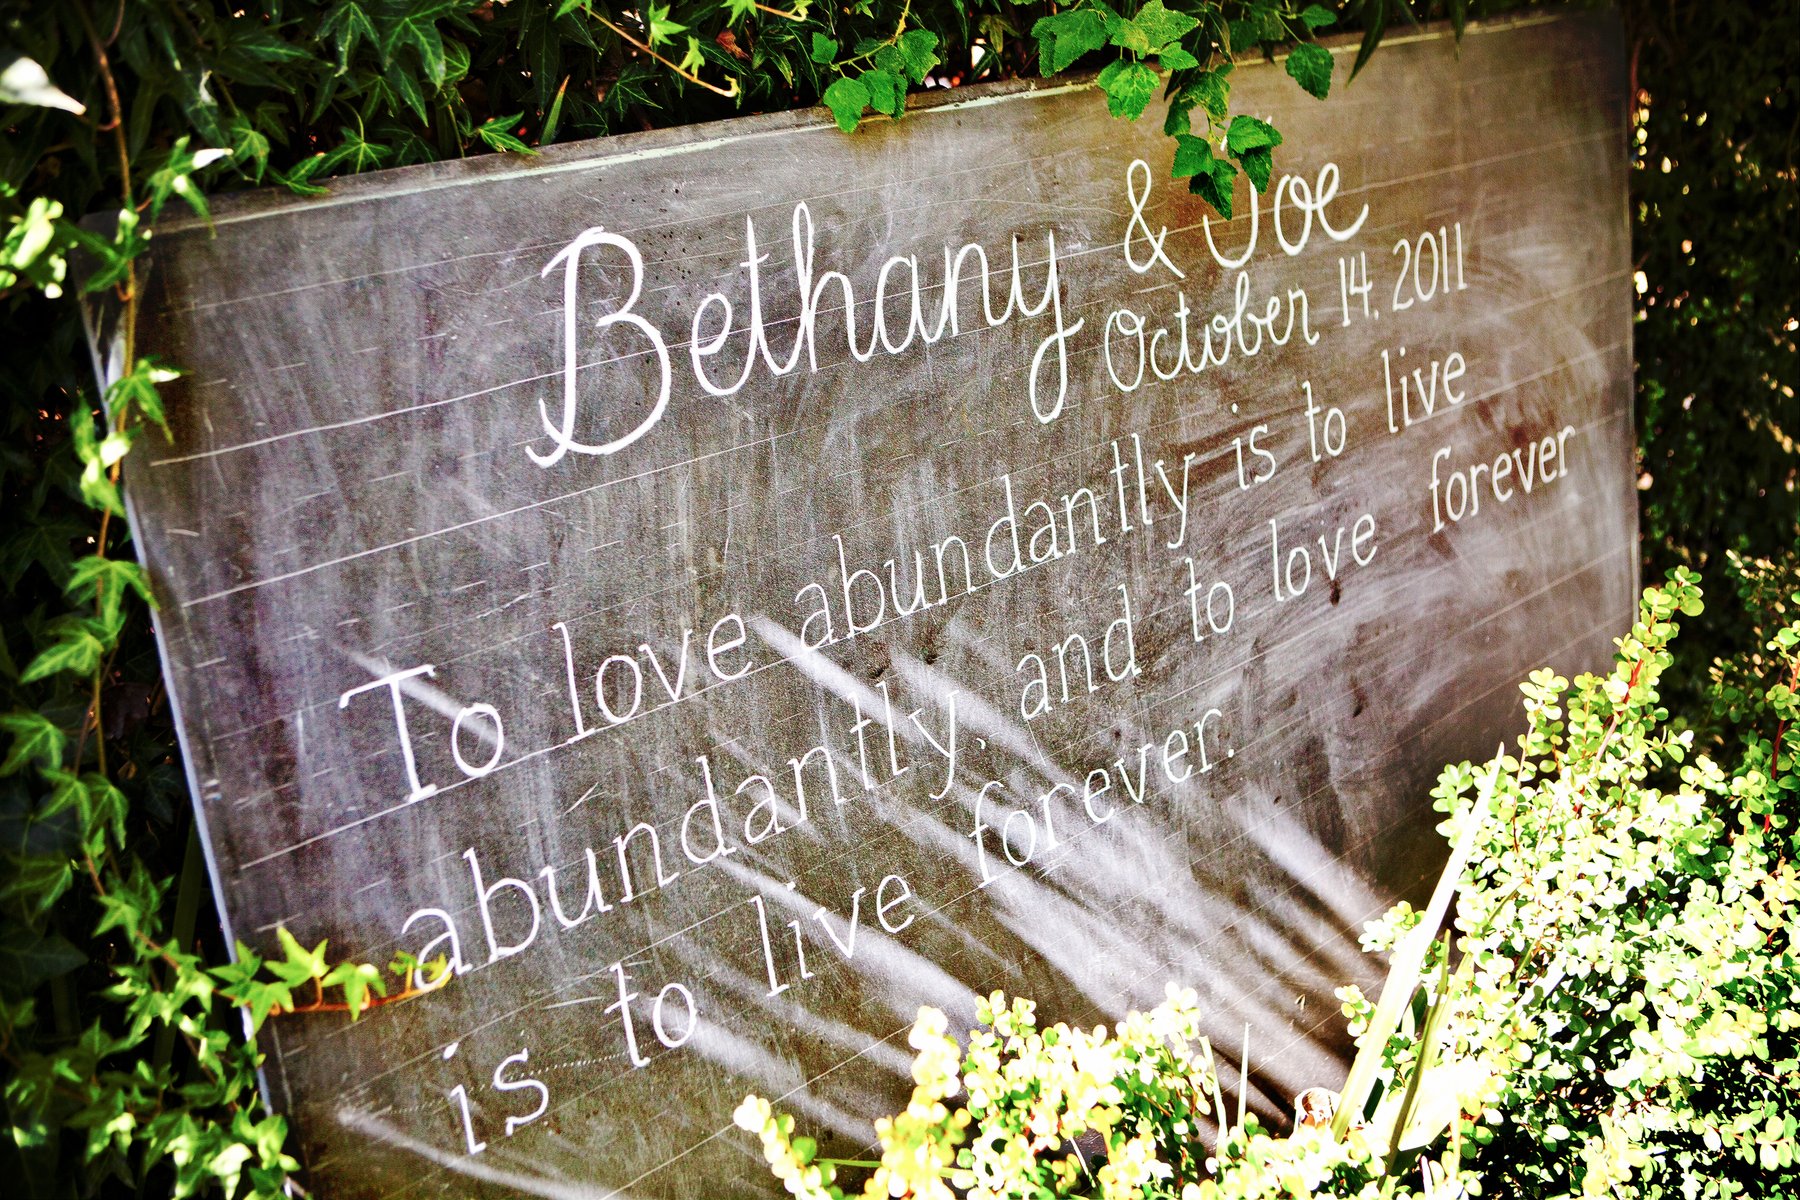 Bethany & Joe
October 14, 2011
To love abundantly is to live
abundantly, and to love forever
is to live forever.